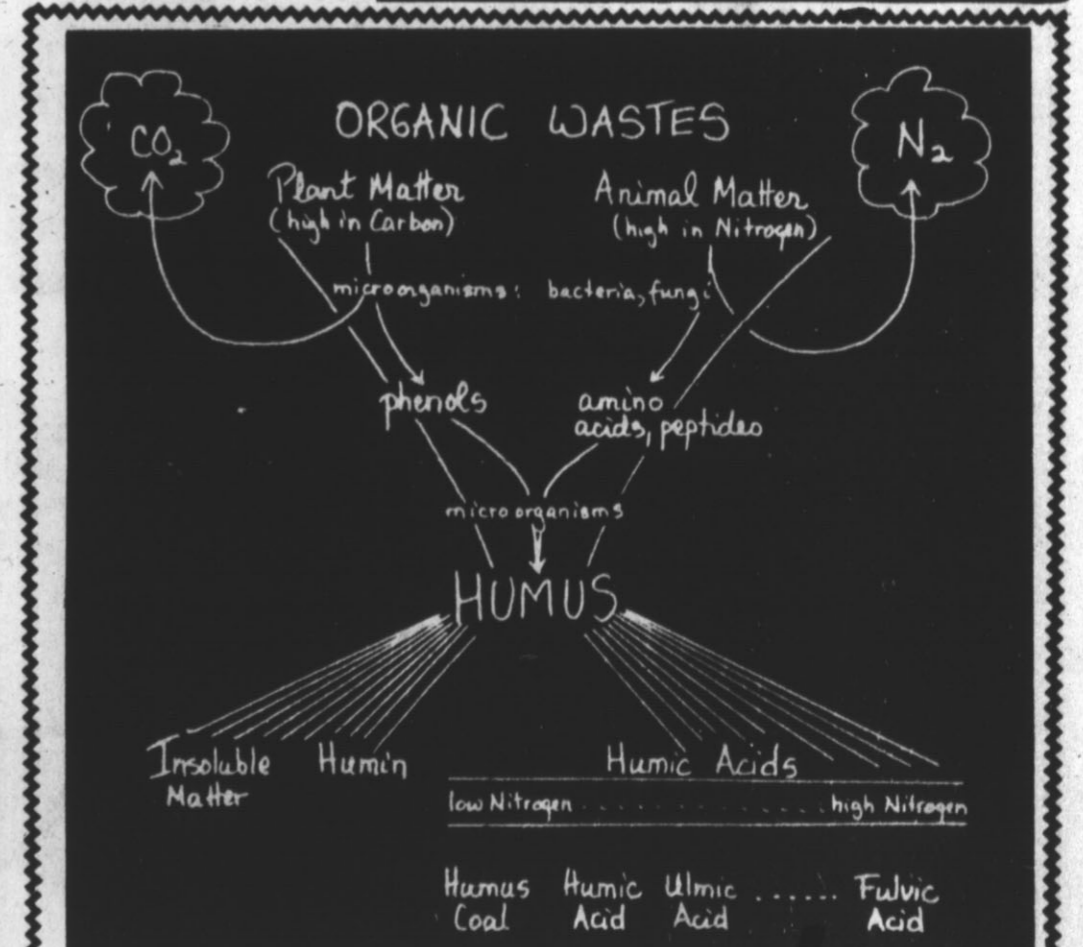 ORGANIC WASTES
CO2
N2
Plant Matter
(high in Carbon)
Animal Matter
(high in Nitrogen)
microorganisms: bacteria, fungi
phenols
amino
acids, peptides
microorganisms
HUMUS
Insoluble
Matter
Humin
Humic Acids
low Nitrogen ............... high Nitrogen
Humus
Coal
Humic
Acid
Ulmic
Acid
......
Fulvic
Acid